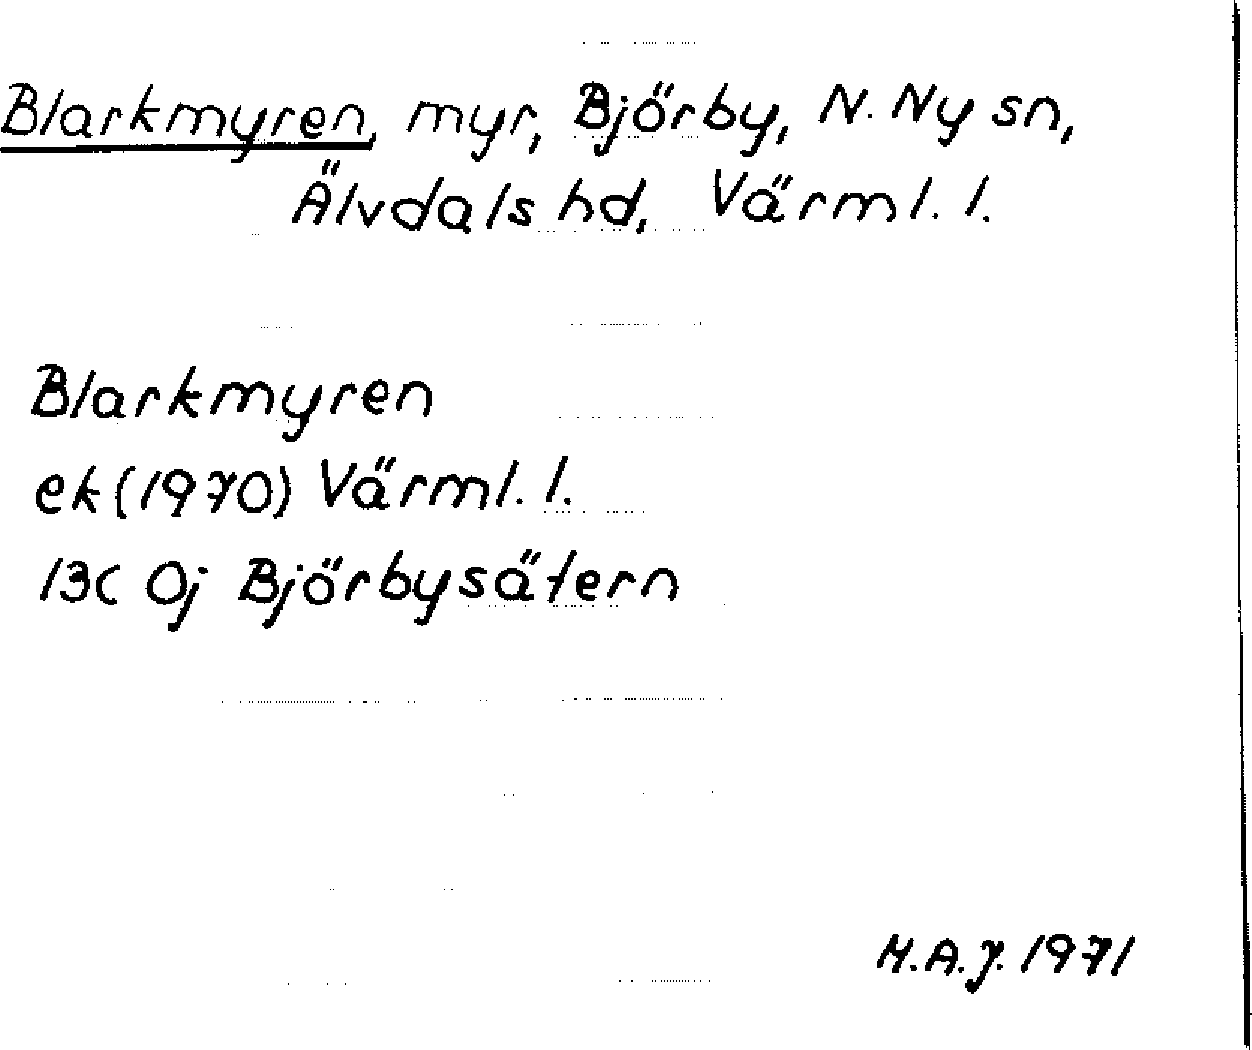 Blarkmyren, myr, Björby, N. Ny sn,
Älvdals hd, Värml. l.
Blarkmyren
ek (1970) Värml. l.
13C 0j Björbysätern
H.A.J. 1971